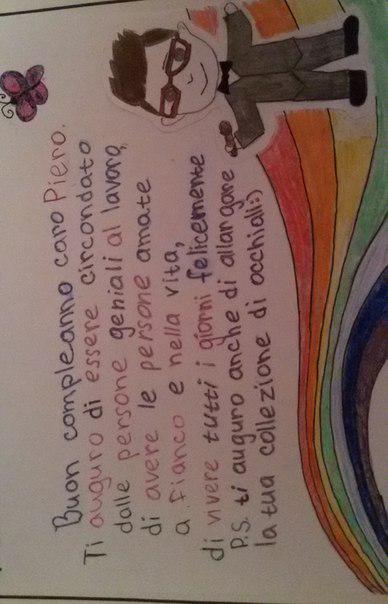 Buon compleanno caro Piero.
Ti auguro di essere circondato
dalle persone geniali al lavoro,
di avere le persone amate
a fianco e nella vita,
di vivere tutti i giorni felicemente
P.S. ti auguro anche di allargare
la tua collezione di occhiali:)